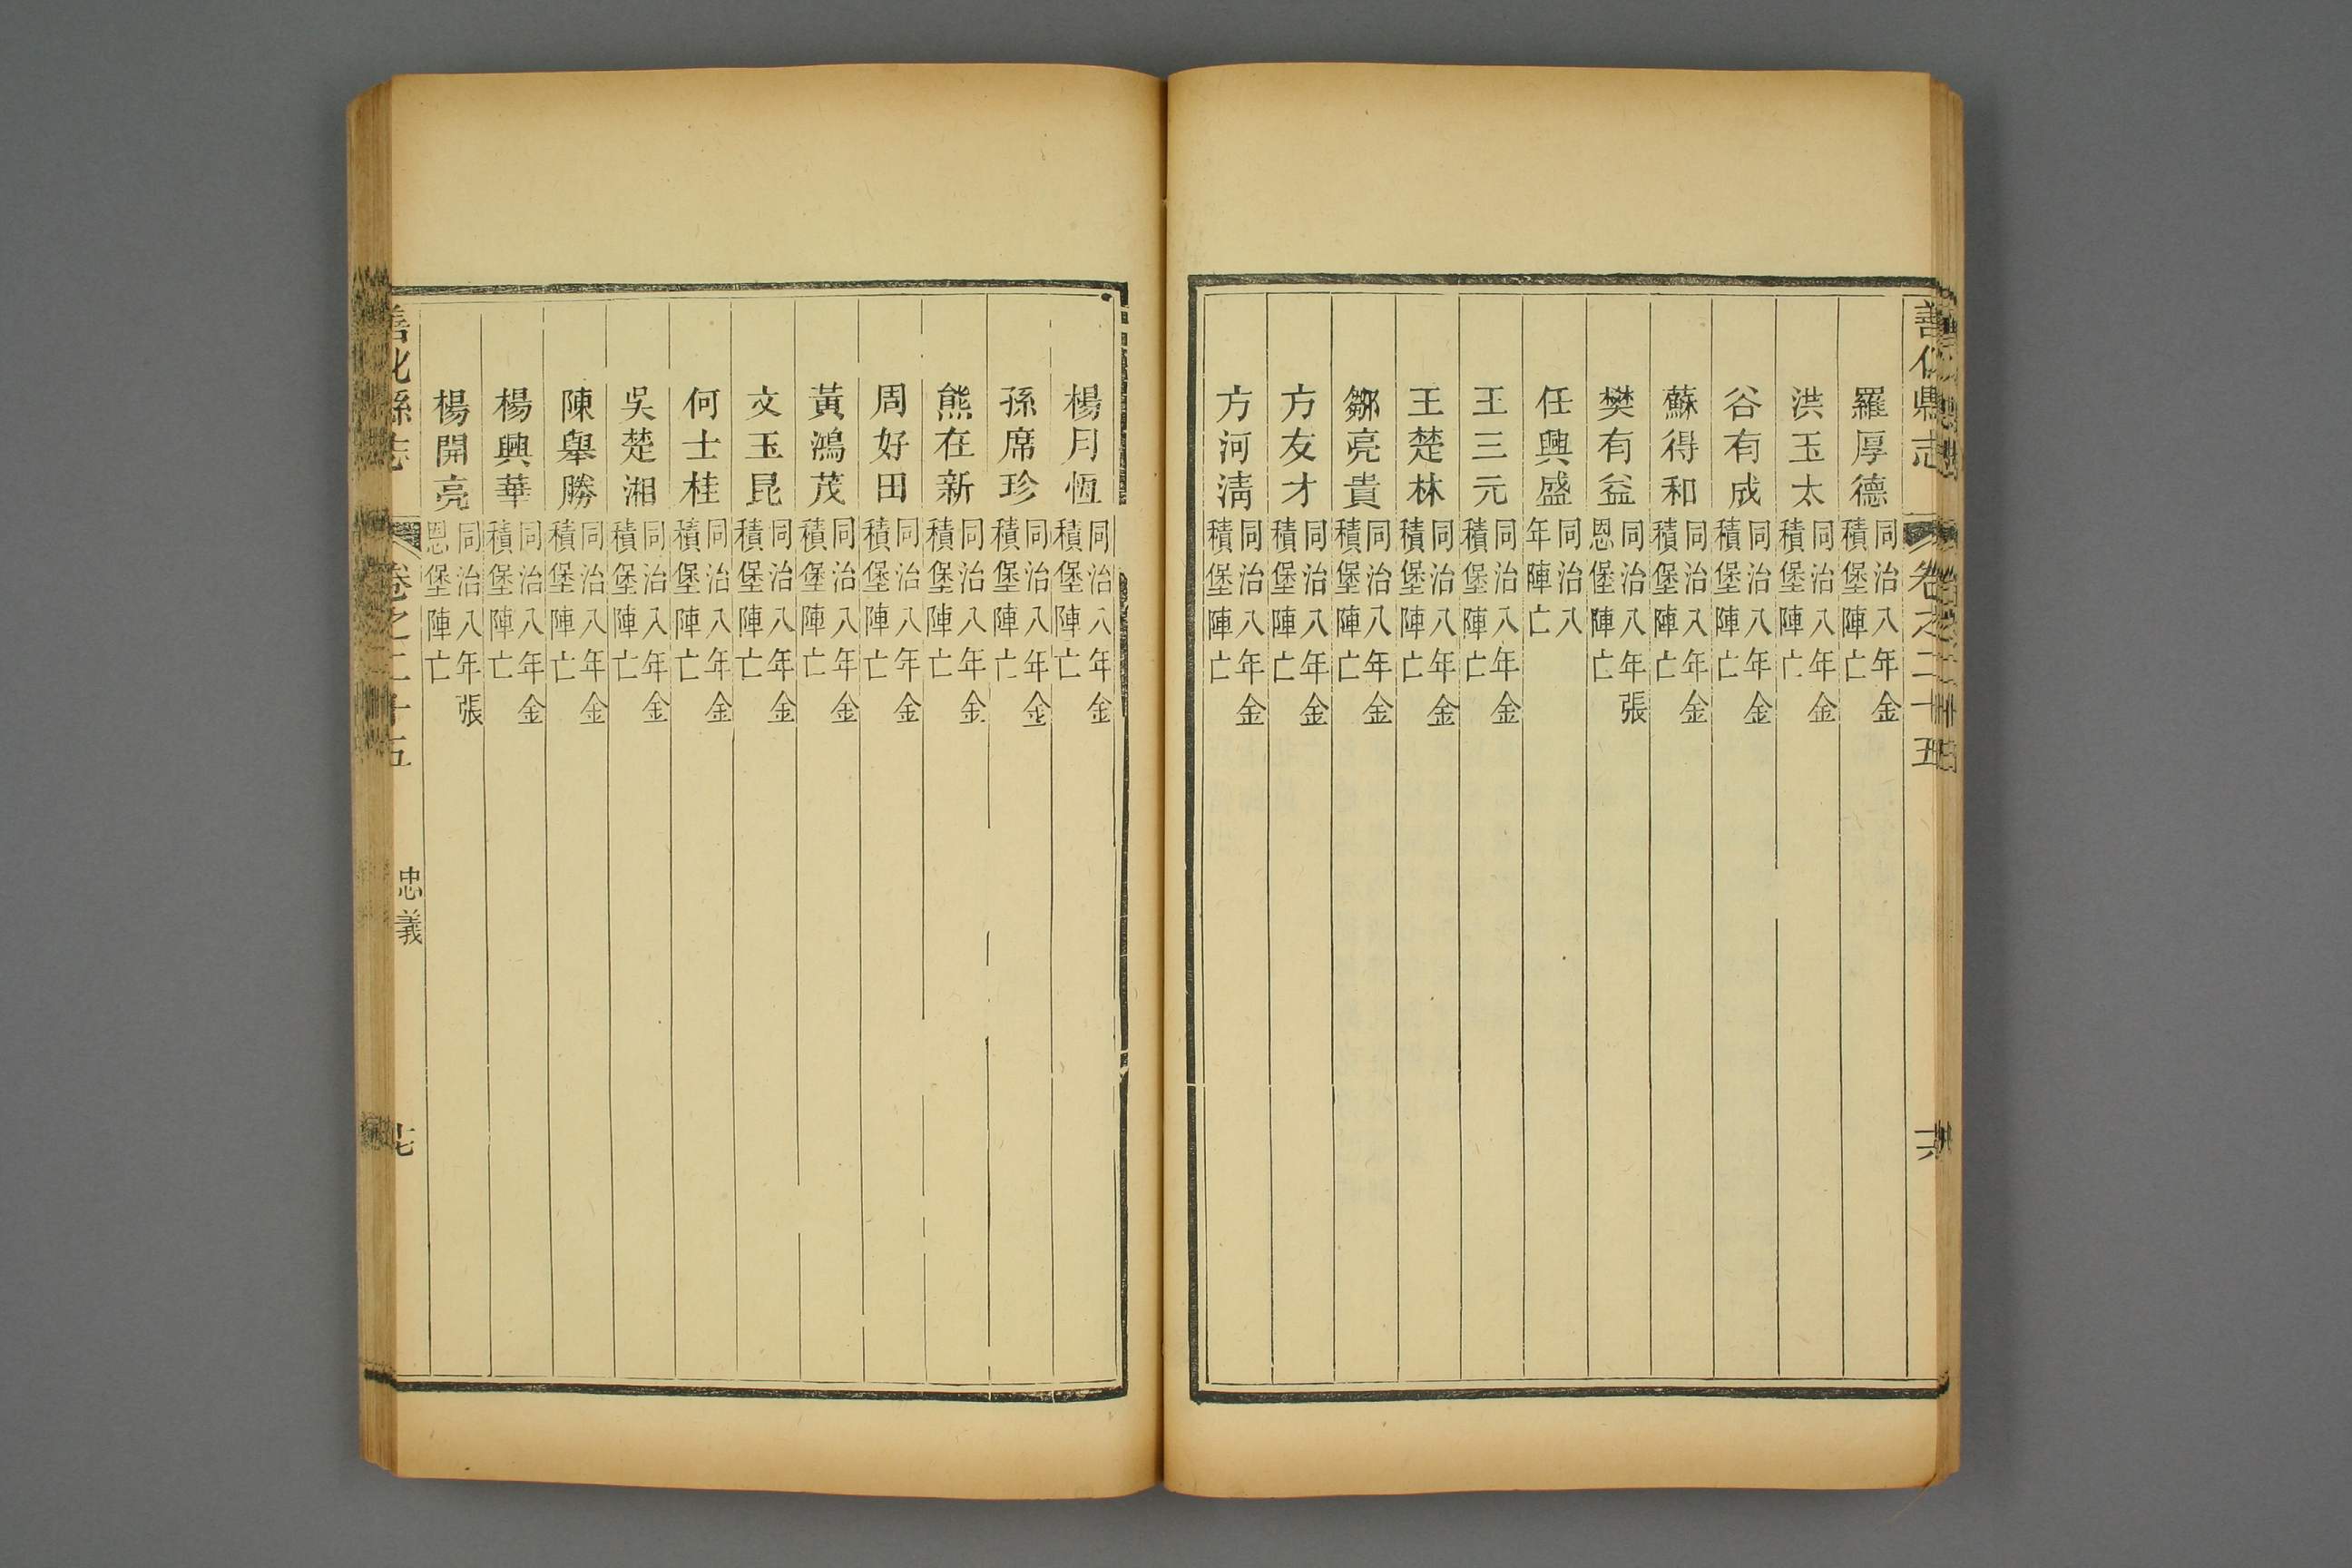 善化縣志 卷之二十五 六
羅厚德 同治八年金積堡陣亡
洪玉太 同治八年金積堡陣亡
谷有成 同治八年金積堡陣亡
蘇得和 同治八年金積堡陣亡
樊有益 同治八年張恩堡陣亡
任興盛 同治八年陣亡
王三元 同治八年金積堡陣亡
王楚林 同治八年金積堡陣亡
鄒亮貴 同治八年金積堡陣亡
方友才 同治八年金積堡陣亡
方河清 同治八年金積堡陣亡
楊月恆 同治八年金積堡陣亡
孫席珍 同治八年金積堡陣亡
熊在新 同治八年金積堡陣亡
周好田 同治八年金積堡陣亡
黃鴻茂 同治八年金積堡陣亡
文玉昆 同治八年金積堡陣亡
何士桂 同治八年金積堡陣亡
吳楚湘 同治八年金積堡陣亡
陳舉勝 同治八年金積堡陣亡
楊興華 同治八年金積堡陣亡
楊開亮 同治八年張恩堡陣亡
善化縣志 卷之二十五 忠義